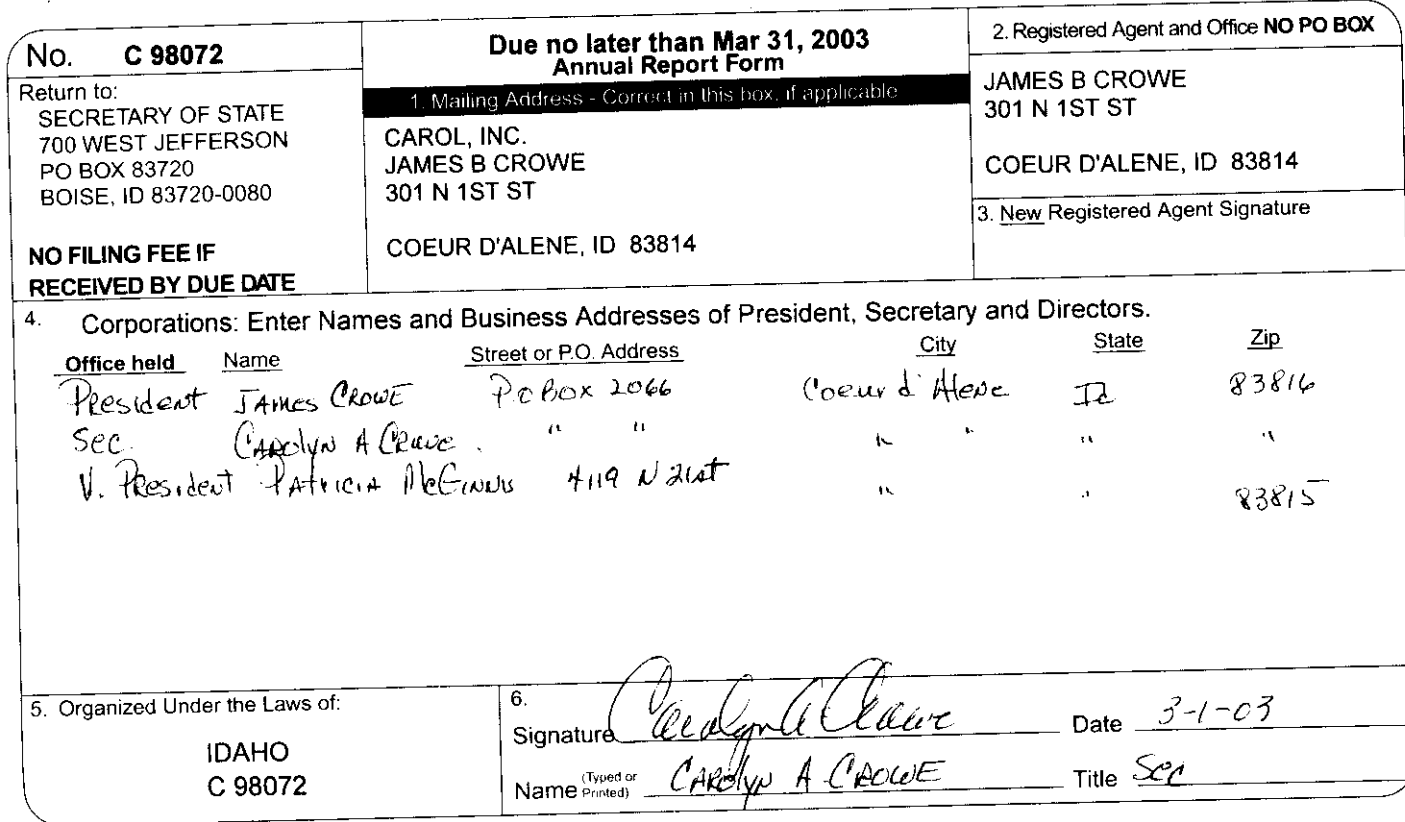 No. C 98072
Return to:
SECRETARY OF STATE
700 WEST JEFFERSON
PO BOX 83720
BOISE, ID 83720-0080
NO FILING FEE IF
RECEIVED BY DUE DATE
Due no later than Mar 31, 2003
Annual Report Form
1. Mailing Address - Correct in this box, if applicable
CAROL, INC.
JAMES B CROWE
301 N 1ST ST
COEUR D'ALENE, ID 83814
2. Registered Agent and Office NO PO BOX
JAMES B CROWE
301 N 1ST ST
COEUR D'ALENE, ID 83814
3. New Registered Agent Signature
4. Corporations: Enter Names and Business Addresses of President, Secretary and Directors.
Office held Name Street or P.O. Address City State Zip
President JAMES CROWE P.O BOX 2066 Coeur d'Alene Id 83816
Sec. CAROLYN A CROWE " " " " " "
V. President PATRICIA McGINNIS 4119 N 21st " " 83815
5. Organized Under the Laws of:
IDAHO
C 98072
6.
Signature Carolyn A Crowe Date 3-1-03
Name (Typed or Printed) CAROLYN A CROWE Title Sec